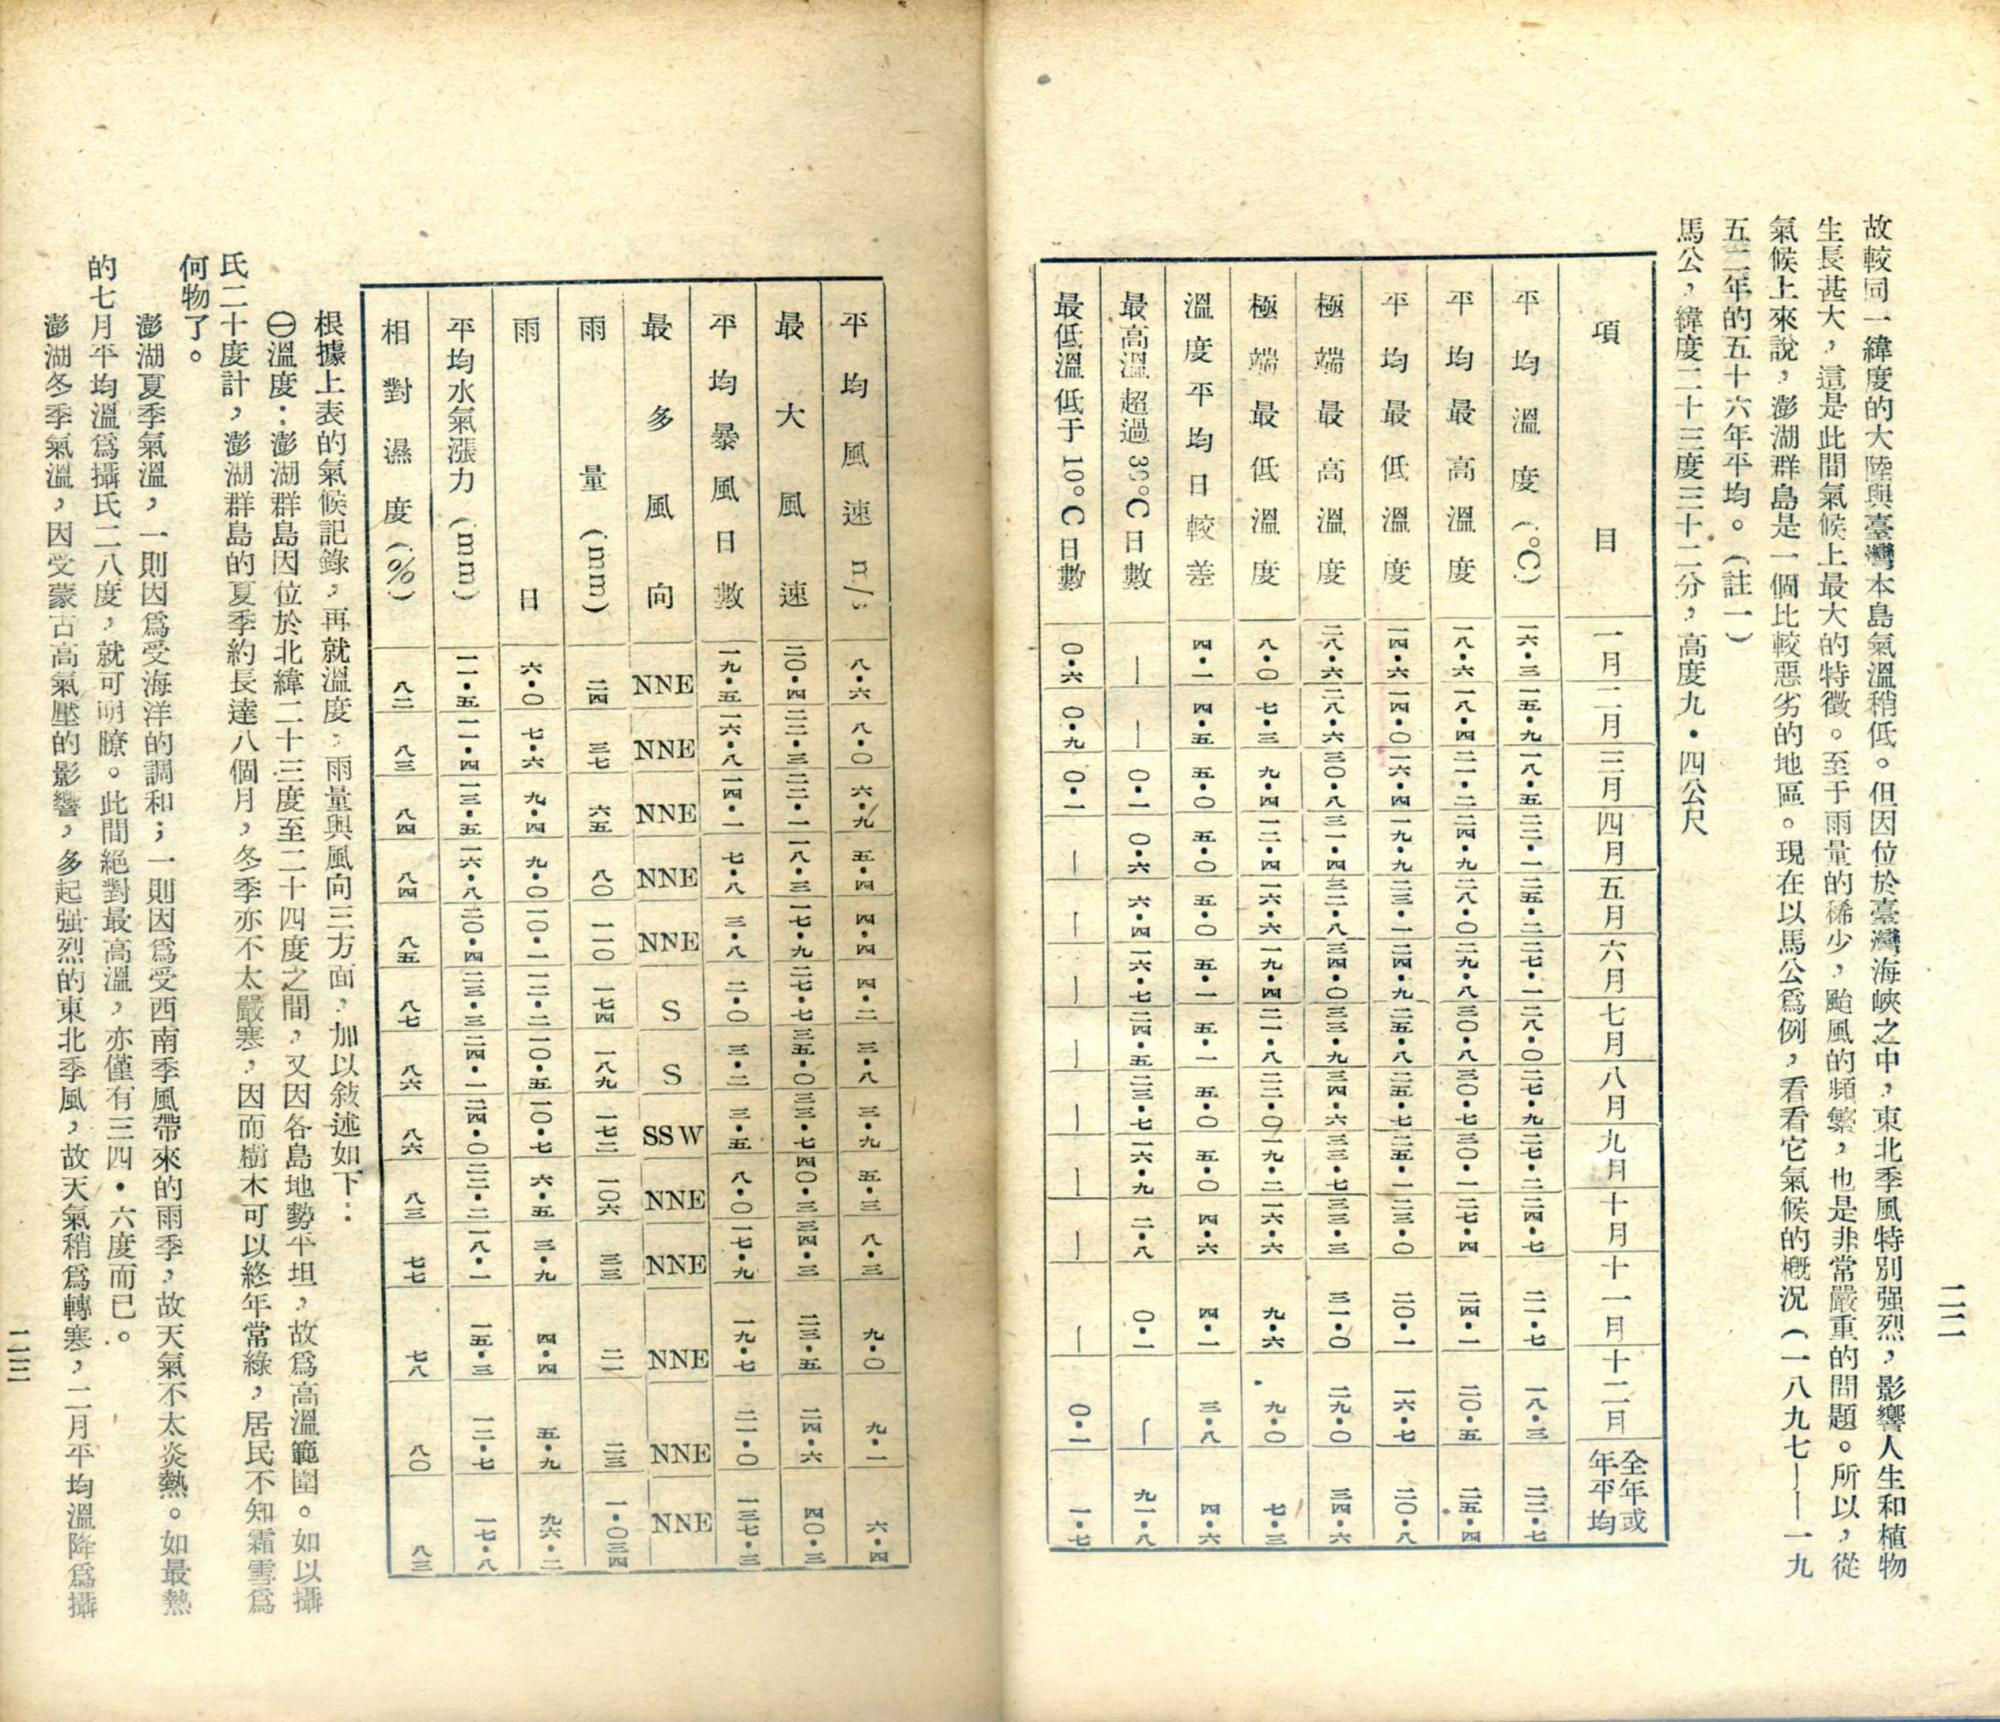 二二
故較同一緯度的大陸與臺灣本島氣溫稍低。但因位於臺灣海峽之中，東北季風特別强烈，影響人生和植物
生長甚大，這是此間氣候上最大的特徵。至于雨量的稀少，颱風的頻繁，也是非常嚴重的問題。所以，從
氣候上來說，澎湖群島是一個比較惡劣的地區。現在以馬公爲例，看看它氣候的槪況（一八九七——一九
五二年的五十六年平均。（註一）
馬公，緯度二十三度三十二分，高度九・四公尺
項目 一月 二月 三月 四月 五月 六月 七月 八月 九月 十月 十一月 十二月 全年或年平均
平均溫度(°C) 一六・三 一五・九 一八・五 二二・一 二五・二 二七・一 二八・〇 二七・九 二七・二 二四・七 二一・七 一八・三 二二・七
平均最高溫度 一八・六 一八・四 二一・二 二四・九 二八・〇 二九・八 三〇・八 三〇・七 三〇・一 二七・四 二四・一 二〇・五 二五・四
平均最低溫度 一四・六 一四・〇 一六・四 一九・九 二三・一 二四・九 二五・八 二五・七 二五・一 二三・〇 二〇・一 一六・七 二〇・八
極端最高溫度 二八・六 二八・六 三〇・八 三一・四 三二・八 三四・〇 三三・九 三四・六 三三・七 三三・三 三一・〇 二九・〇 三四・六
極端最低溫度 八・〇 七・三 九・四 一二・四 一六・六 一九・四 二一・八 二二・〇 一九・二 一六・六 九・六 九・〇 七・三
溫度平均日較差 四・一 四・五 五・〇 五・〇 五・〇 五・一 五・一 五・〇 五・〇 四・六 四・一 三・八 四・六
最高溫超過 °C日數 — — 〇・一 〇・六 六・四 一六・七 二四・五 二三・七 一六・九 二・八 〇・一 — 九一・八
最低溫低于10°C日數 〇・六 〇・九 〇・一 — — — — — — — — 〇・一 一・七
平均風速 m/s 八・六 八・〇 六・九 五・四 四・四 四・二 三・八 三・九 五・三 八・三 九・〇 九・一 六・四
最大風速 二〇・四 二二・三 二二・一 一八・三 一七・九 二七・七 三五・〇 三三・七 四〇・三 三四・三 二三・五 二四・六 四〇・三
平均暴風日數 一九・五 一六・八 一四・一 七・八 三・八 二・〇 三・二 三・五 八・〇 一七・九 一九・七 二一・〇 一三七・三
最多風向 NNE NNE NNE NNE NNE S S SSW NNE NNE NNE NNE NNE
雨量(mm) 二四 三七 六五 八〇 一一〇 一七四 一八九 一七二 一〇六 三三 二一 二三 一・〇三四
雨日 六・〇 七・六 九・四 九・〇 一〇・一 一二・二 一〇・五 一〇・七 六・五 三・九 四・四 五・九 九六・二
平均水氣漲力(mm) 一一・五 一一・四 一三・五 一六・八 二〇・四 二三・三 二四・一 二四・〇 二二・二 一八・一 一五・三 一二・七 一七・八
相對濕度(%) 八二 八三 八四 八四 八五 八七 八六 八六 八三 七七 七八 八〇 八三
根據上表的氣候記錄，再就溫度，雨量與風向三方面，加以敍述如下：
㊀溫度：澎湖群島因位於北緯二十三度至二十四度之間，又因各島地勢平坦，故爲高溫範圍。如以攝
氏二十度計，澎湖群島的夏季約長達八個月，冬季亦不太嚴寒，因而樹木可以終年常綠，居民不知霜雪爲
何物了。
澎湖夏季氣溫，一則因爲受海洋的調和；一則因爲受西南季風帶來的雨季，故天氣不太炎熱。如最熱
的七月平均溫爲攝氏二八度，就可明瞭。此間絕對最高溫，亦僅有三四・六度而已。
澎湖冬季氣溫，因受蒙古高氣壓的影響，多起强烈的東北季風，故天氣稍爲轉寒，二月平均溫降爲攝
二三